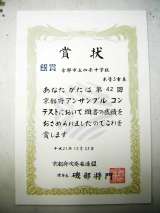 賞状
銀賞
木管5重奏
あなたがたは第42回
京都府アンサンブルコン
テストにおいて頭書の成績を
おさめられましたのでこれを
賞します
平成21年12月23日
京都府吹奏楽連盟
理事長 磯部将門